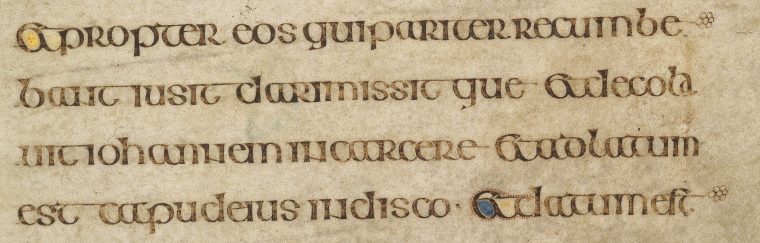 Et propter eos qui pariter recumbe
bant iusit dari missit que et decola
uit iohannem in carcere et adlatum
est caput eius in disco · et datum est